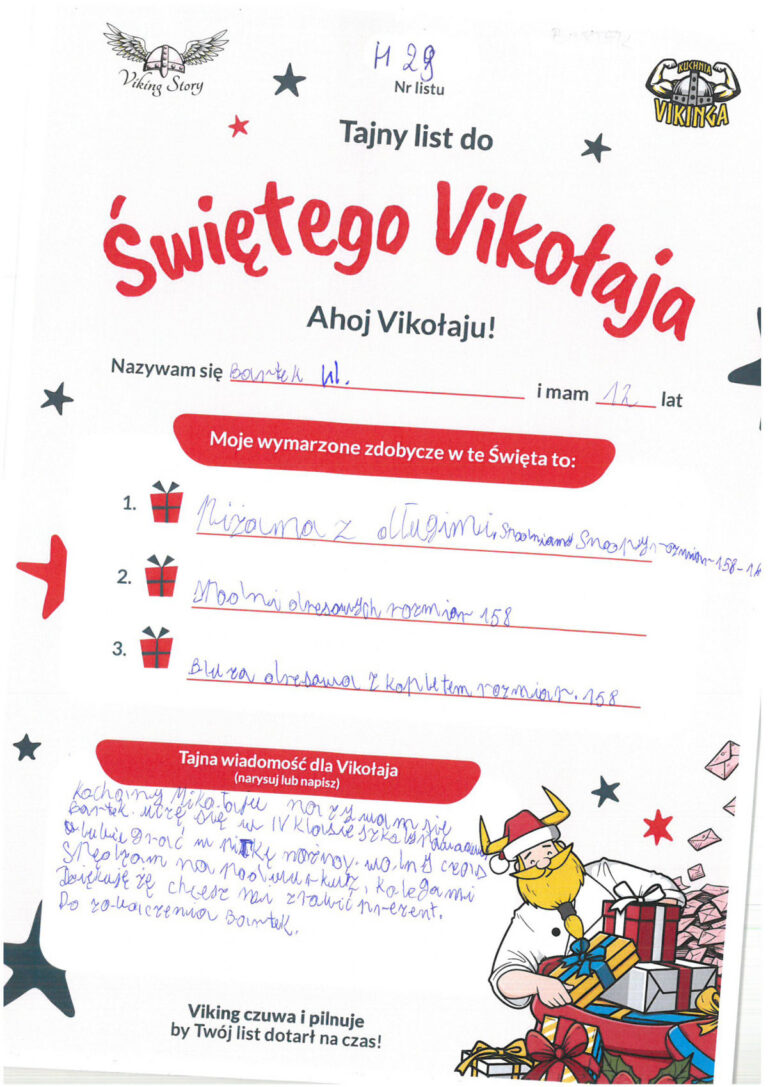 Viking Story
H 29
Nr listu
KUCHNIA
VIKINGA
Tajny list do
Świętego Vikołaja
Ahoj Vikołaju!
Nazywam się Bartek W. i mam 12 lat
Moje wymarzone zdobycze w te Święta to:
1. Piżama z długimi spodniami Snoopy rozmiar 158-
2. Spodni dresowych rozmiar 158
3. Bluza dresowa z kapletem rozmiar. 158
Tajna wiadomość dla Wikołaja
(narysuj lub napisz)
Kochany Mikołaju nazywam się
Bartek. uczę się w IV klasie
lubię grać w piłkę nożną. wolny czas
Spędzam na podwurku z kolegami
Dziękuję że chcesz mi zrobić prezent.
Do zobaczenia Bartek.
Viking czuwa i pilnuje
by Twój list dotarł na czas!